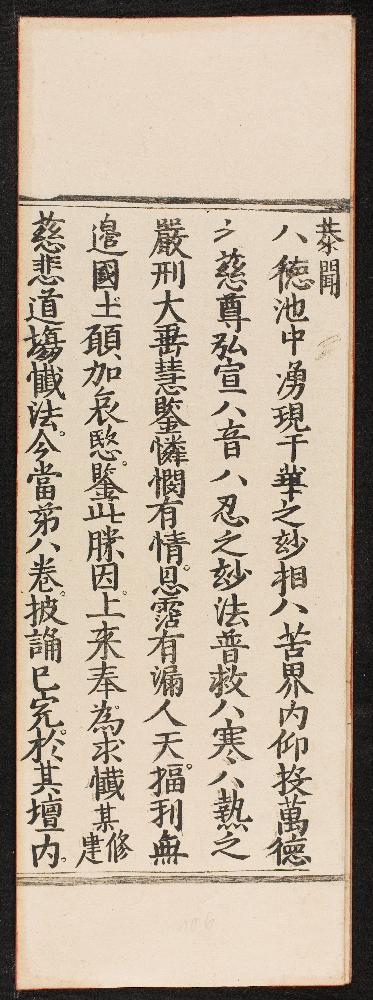 恭聞
八德池中湧現千華之玅相八苦界内仰投萬德
之慈尊弘宣八音八忍之玅法普救八寒八熱之
嚴刑大垂慧鑒憐憫有情恩霑有漏人天福利無
邉國土願加哀愍鑒此勝因上来奉為求懺某修建
慈悲道塲懺法今當苐八卷披誦已完於其壇内